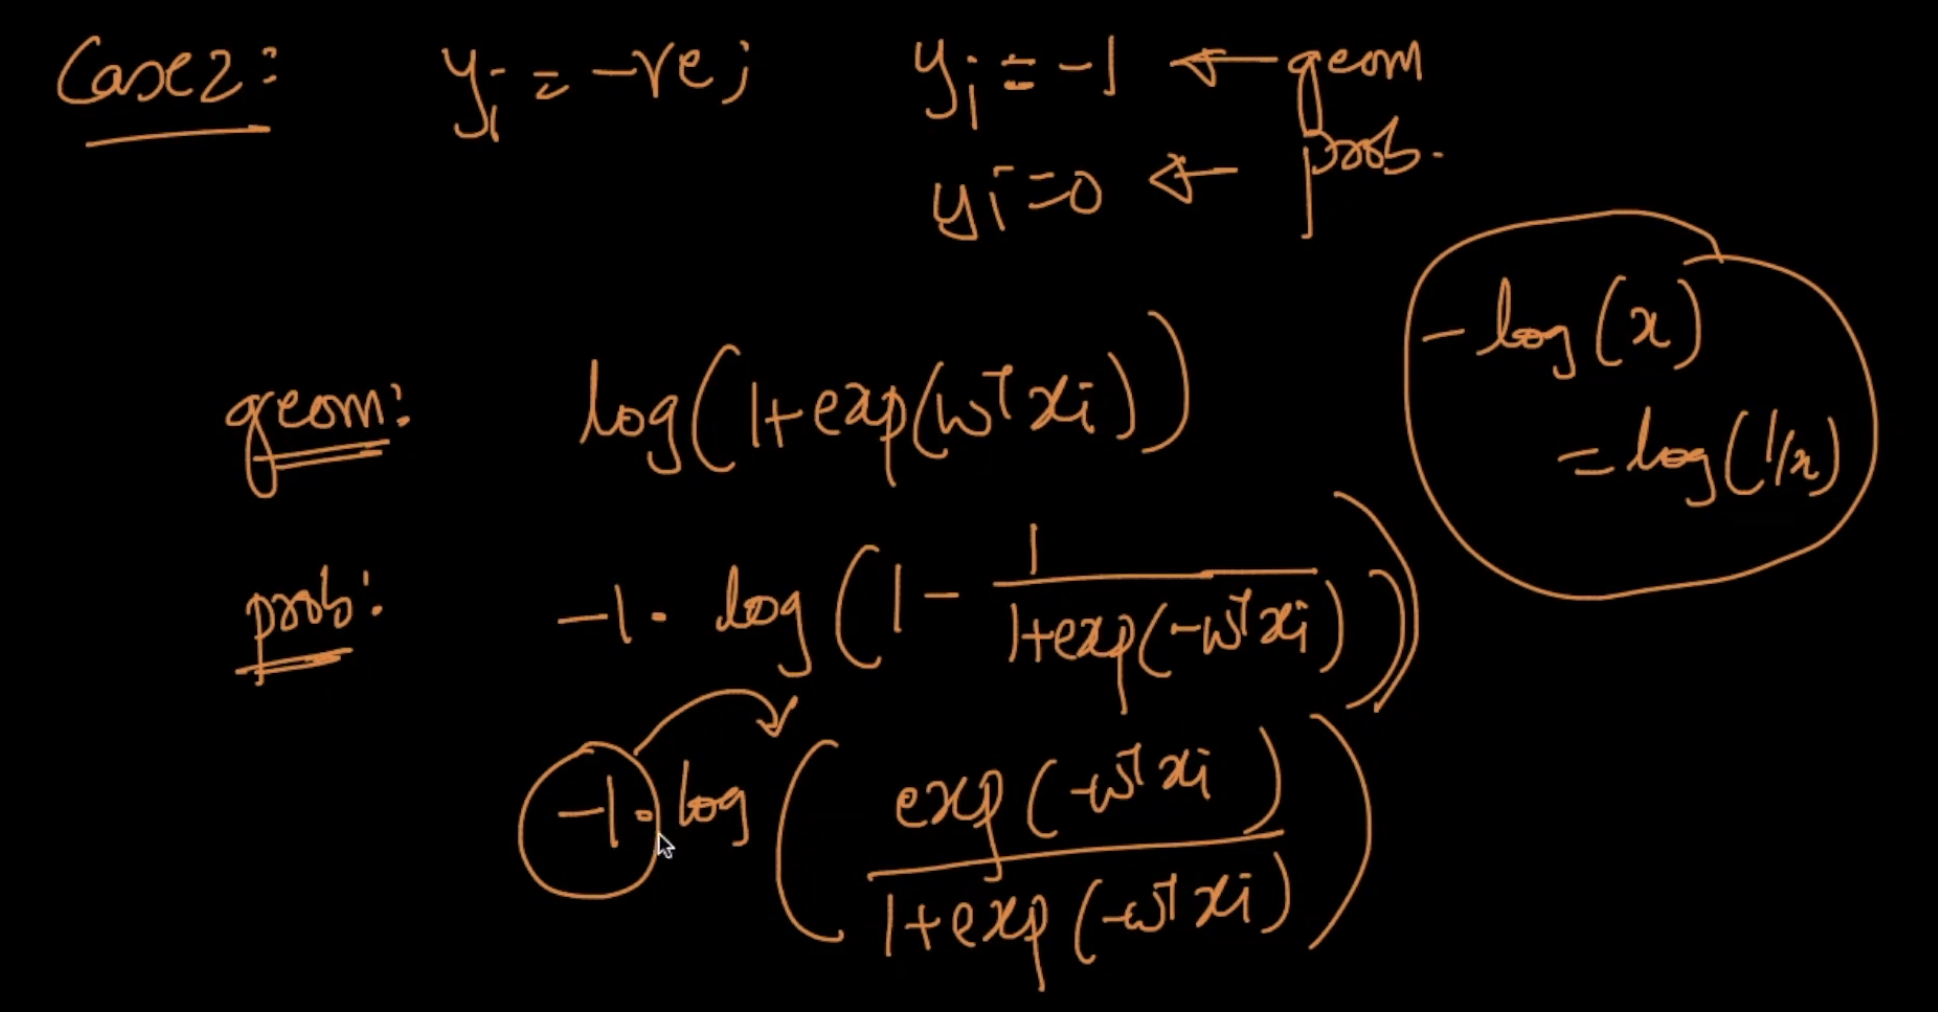 Case 2: yi = -ve; yi = -1 ← geom
yi = 0 ← prob.
-log(x)
= log(1/x)
geom: log(1+exp(wᵀxi))
prob: -1 · log(1 - 1/(1+exp(-wᵀxi)))
-1 · log(exp(-wᵀxi)/(1+exp(-wᵀxi)))